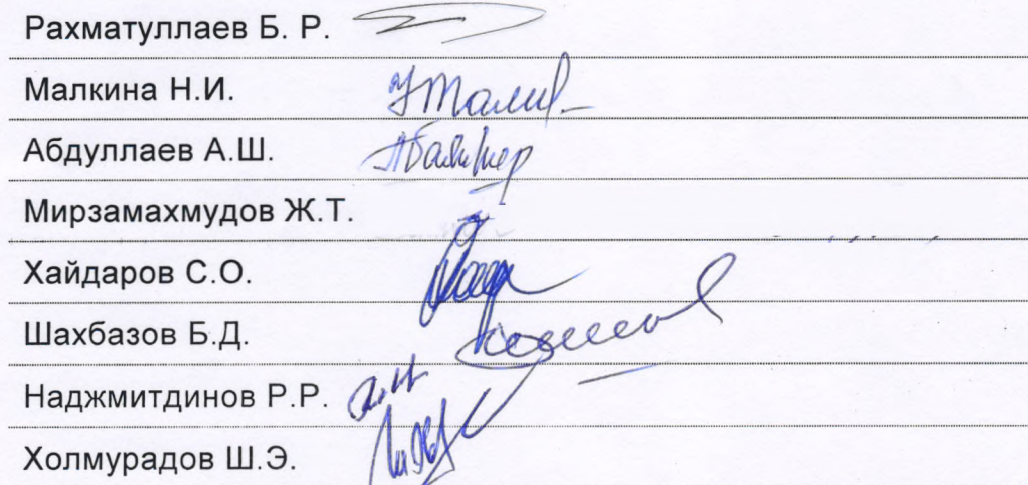 Рахматуллаев Б. Р.
Малкина Н.И.
Абдуллаев А.Ш.
Мирзамахмудов Ж.Т.
Хайдаров С.О.
Шахбазов Б.Д.
Наджмитдинов Р.Р.
Холмурадов Ш.Э.